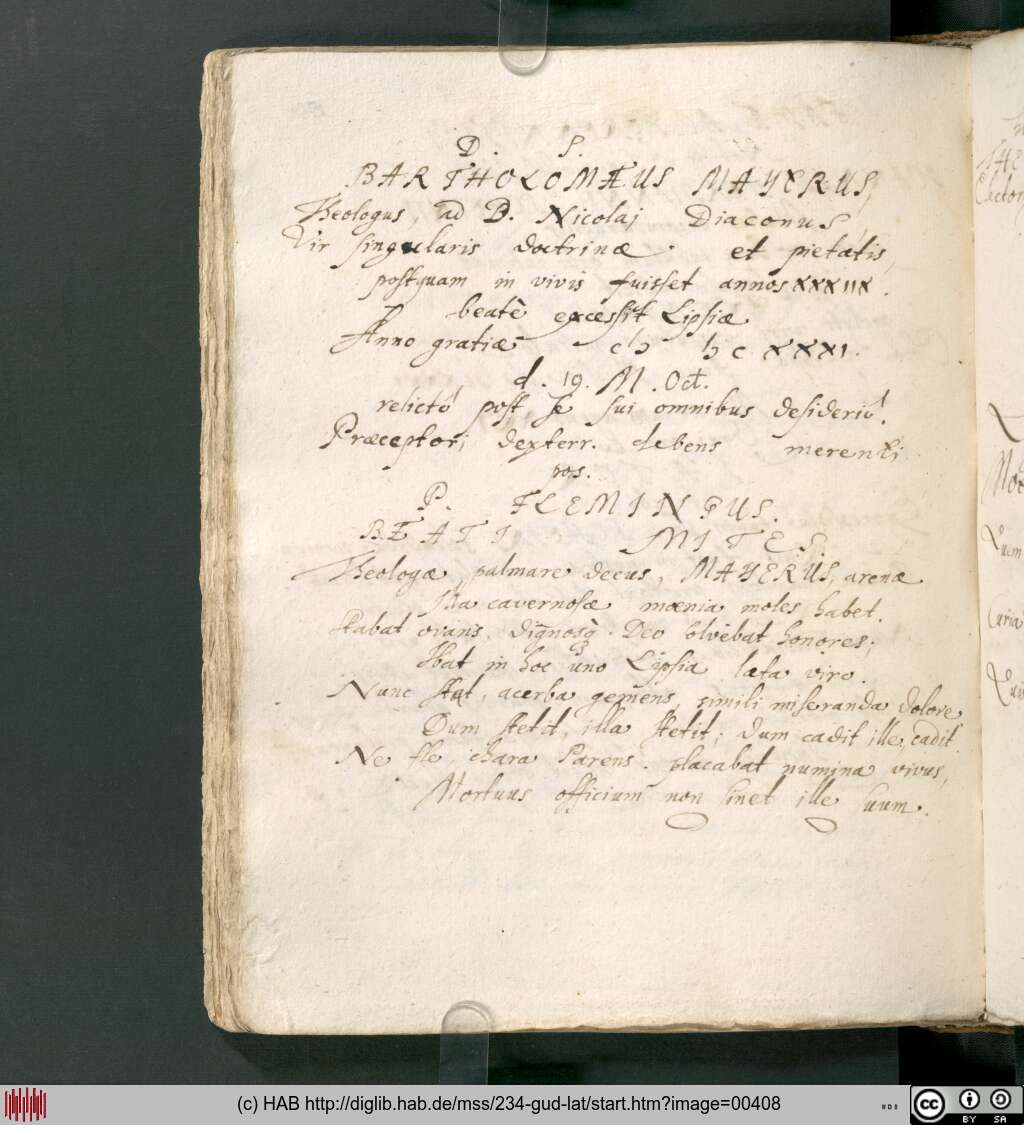 D. S.
BARTHOLOMÆUS MAYERUS,
Theologus, ad D. Nicolaj Diaconus,
Vir singularis doctrinæ et pietatis,
postquam in vivis fuisset annos XXXIIX.
beatè excessit Lipsiæ
Anno gratiæ cIↃ IↃc XXXI.
d. 19. M. Oct.
relictô post se sui omnibus desideriô.
Præceptori dexterr. debens merenti
pos.
P. FLEMINGUS.
BEATI MITES.
Theologæ, palmare decus, MAYERUS, arenæ
Illa cavernosæ mœnia moles habet.
Stabat ovans, dignosq; Deo solvebat honores;
Ibat in hoc uno Lipsia læta viro.
Nunc stat, acerba gemens, simili miseranda dolore
Dum stetit, illa stetit; dum cadit ille, cadit.
Ne fle, chara Parens. placabat numina vivus,
Mortuus officium non sinet ille suum.
(c) HAB http://diglib.hab.de/mss/234-gud-lat/start.htm?image=00408
cc BY SA